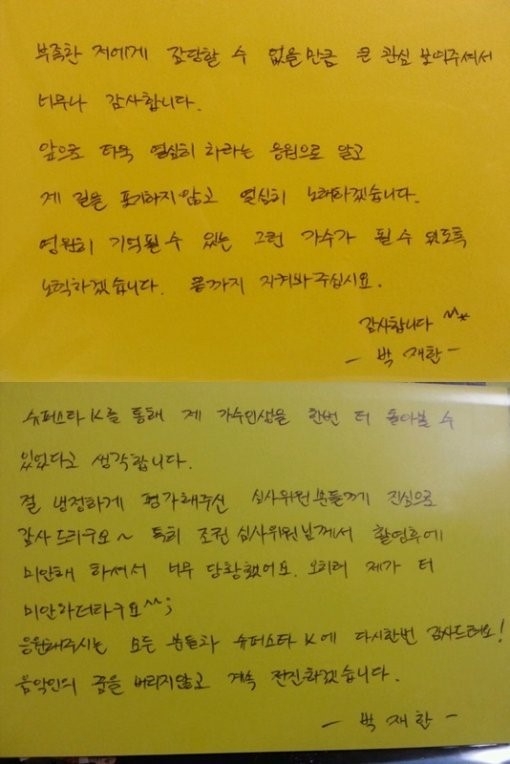 부족한 저에게 감당할 수 없을만큼 큰 관심 보여주셔서
너무나 감사합니다.
앞으로 더욱 열심히 하라는 응원으로 알고
제 길을 포기하지않고 열심히 노래하겠습니다.
영원히 기억될 수 있는 그런 가수가 될 수 있도록
노력하겠습니다. 끝까지 지켜봐주십시요.
감사합니다 ^^*
- 박재한 -
슈퍼스타K를 통해 제 가수인생을 한번 더 돌아볼 수
있었다고 생각합니다.
절 냉정하게 평가해주신 심사위원분들께 진심으로
감사드리구요~ 특히 조권 심사위원님께서 촬영후에
미안해 하셔서 너무 당황했어요. 오히려 제가 더
미안하더라구요^^;
응원해주시는 모든 분들과 슈퍼스타K에 다시한번 감사드려요!
음악인의 꿈을 버리지않고 계속 전진하겠습니다.
- 박재한 -